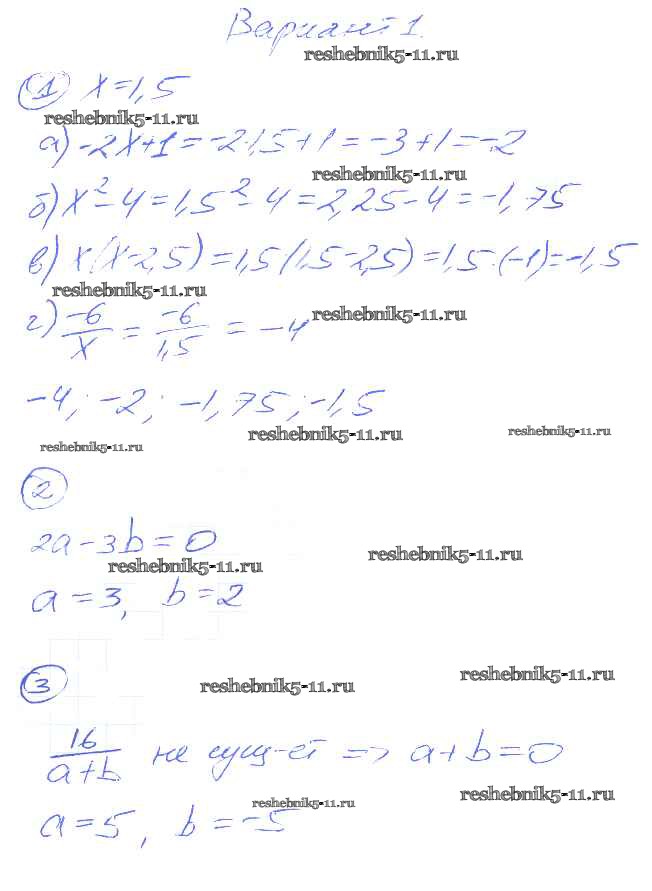 Вариант 1.
reshebnik5-11.ru
① x=1,5
reshebnik5-11.ru
а) -2x+1=-2·1,5+1=-3+1=-2
reshebnik5-11.ru
б) x²-4=1,5²-4=2,25-4=-1,75
в) x(x-2,5)=1,5(1,5-2,5)=1,5·(-1)=-1,5
reshebnik5-11.ru
г) -6/x = -6/1,5 = -4
reshebnik5-11.ru
-4; -2; -1,75; -1,5
reshebnik5-11.ru
reshebnik5-11.ru
reshebnik5-11.ru
②
2a-3b=0
reshebnik5-11.ru
reshebnik5-11.ru
a=3, b=2
③
reshebnik5-11.ru
reshebnik5-11.ru
16/(a+b) не сущ-ет => a+b=0
reshebnik5-11.ru
reshebnik5-11.ru
a=5, b=-5